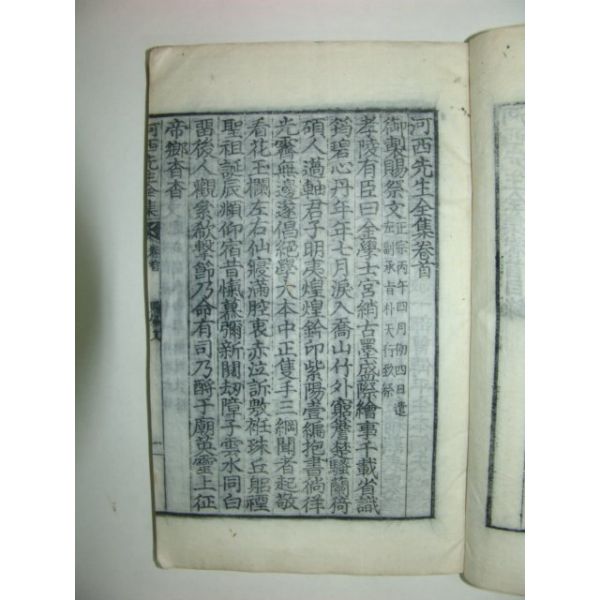 河西先生全集卷首
御製賜祭文 正宗丙午四月初四日遣
左副承旨朴天行致祭
孝陵有臣曰金學士宮綃古墨盛際繪事千載省識
筠碧心丹年年七月淚入喬山竹外窮簷楚騷蘭猗
碩人薖軸君子明夷煌煌鈐印紫陽壹編抱書徜徉
光霽無邊遂倡絕學大本中正隻手三綱聞者起敬
看花玉欄左右仙寢滿腔衷赤泣訴數袵珠丘躬禋
聖祖誕辰頫仰宿昔愾慕彌新閟劫障子雲水同白
留後人觀衾欷擊節乃命有司乃酹于廟英靈上征
帝鄉杳杳
河西先生全集 卷首